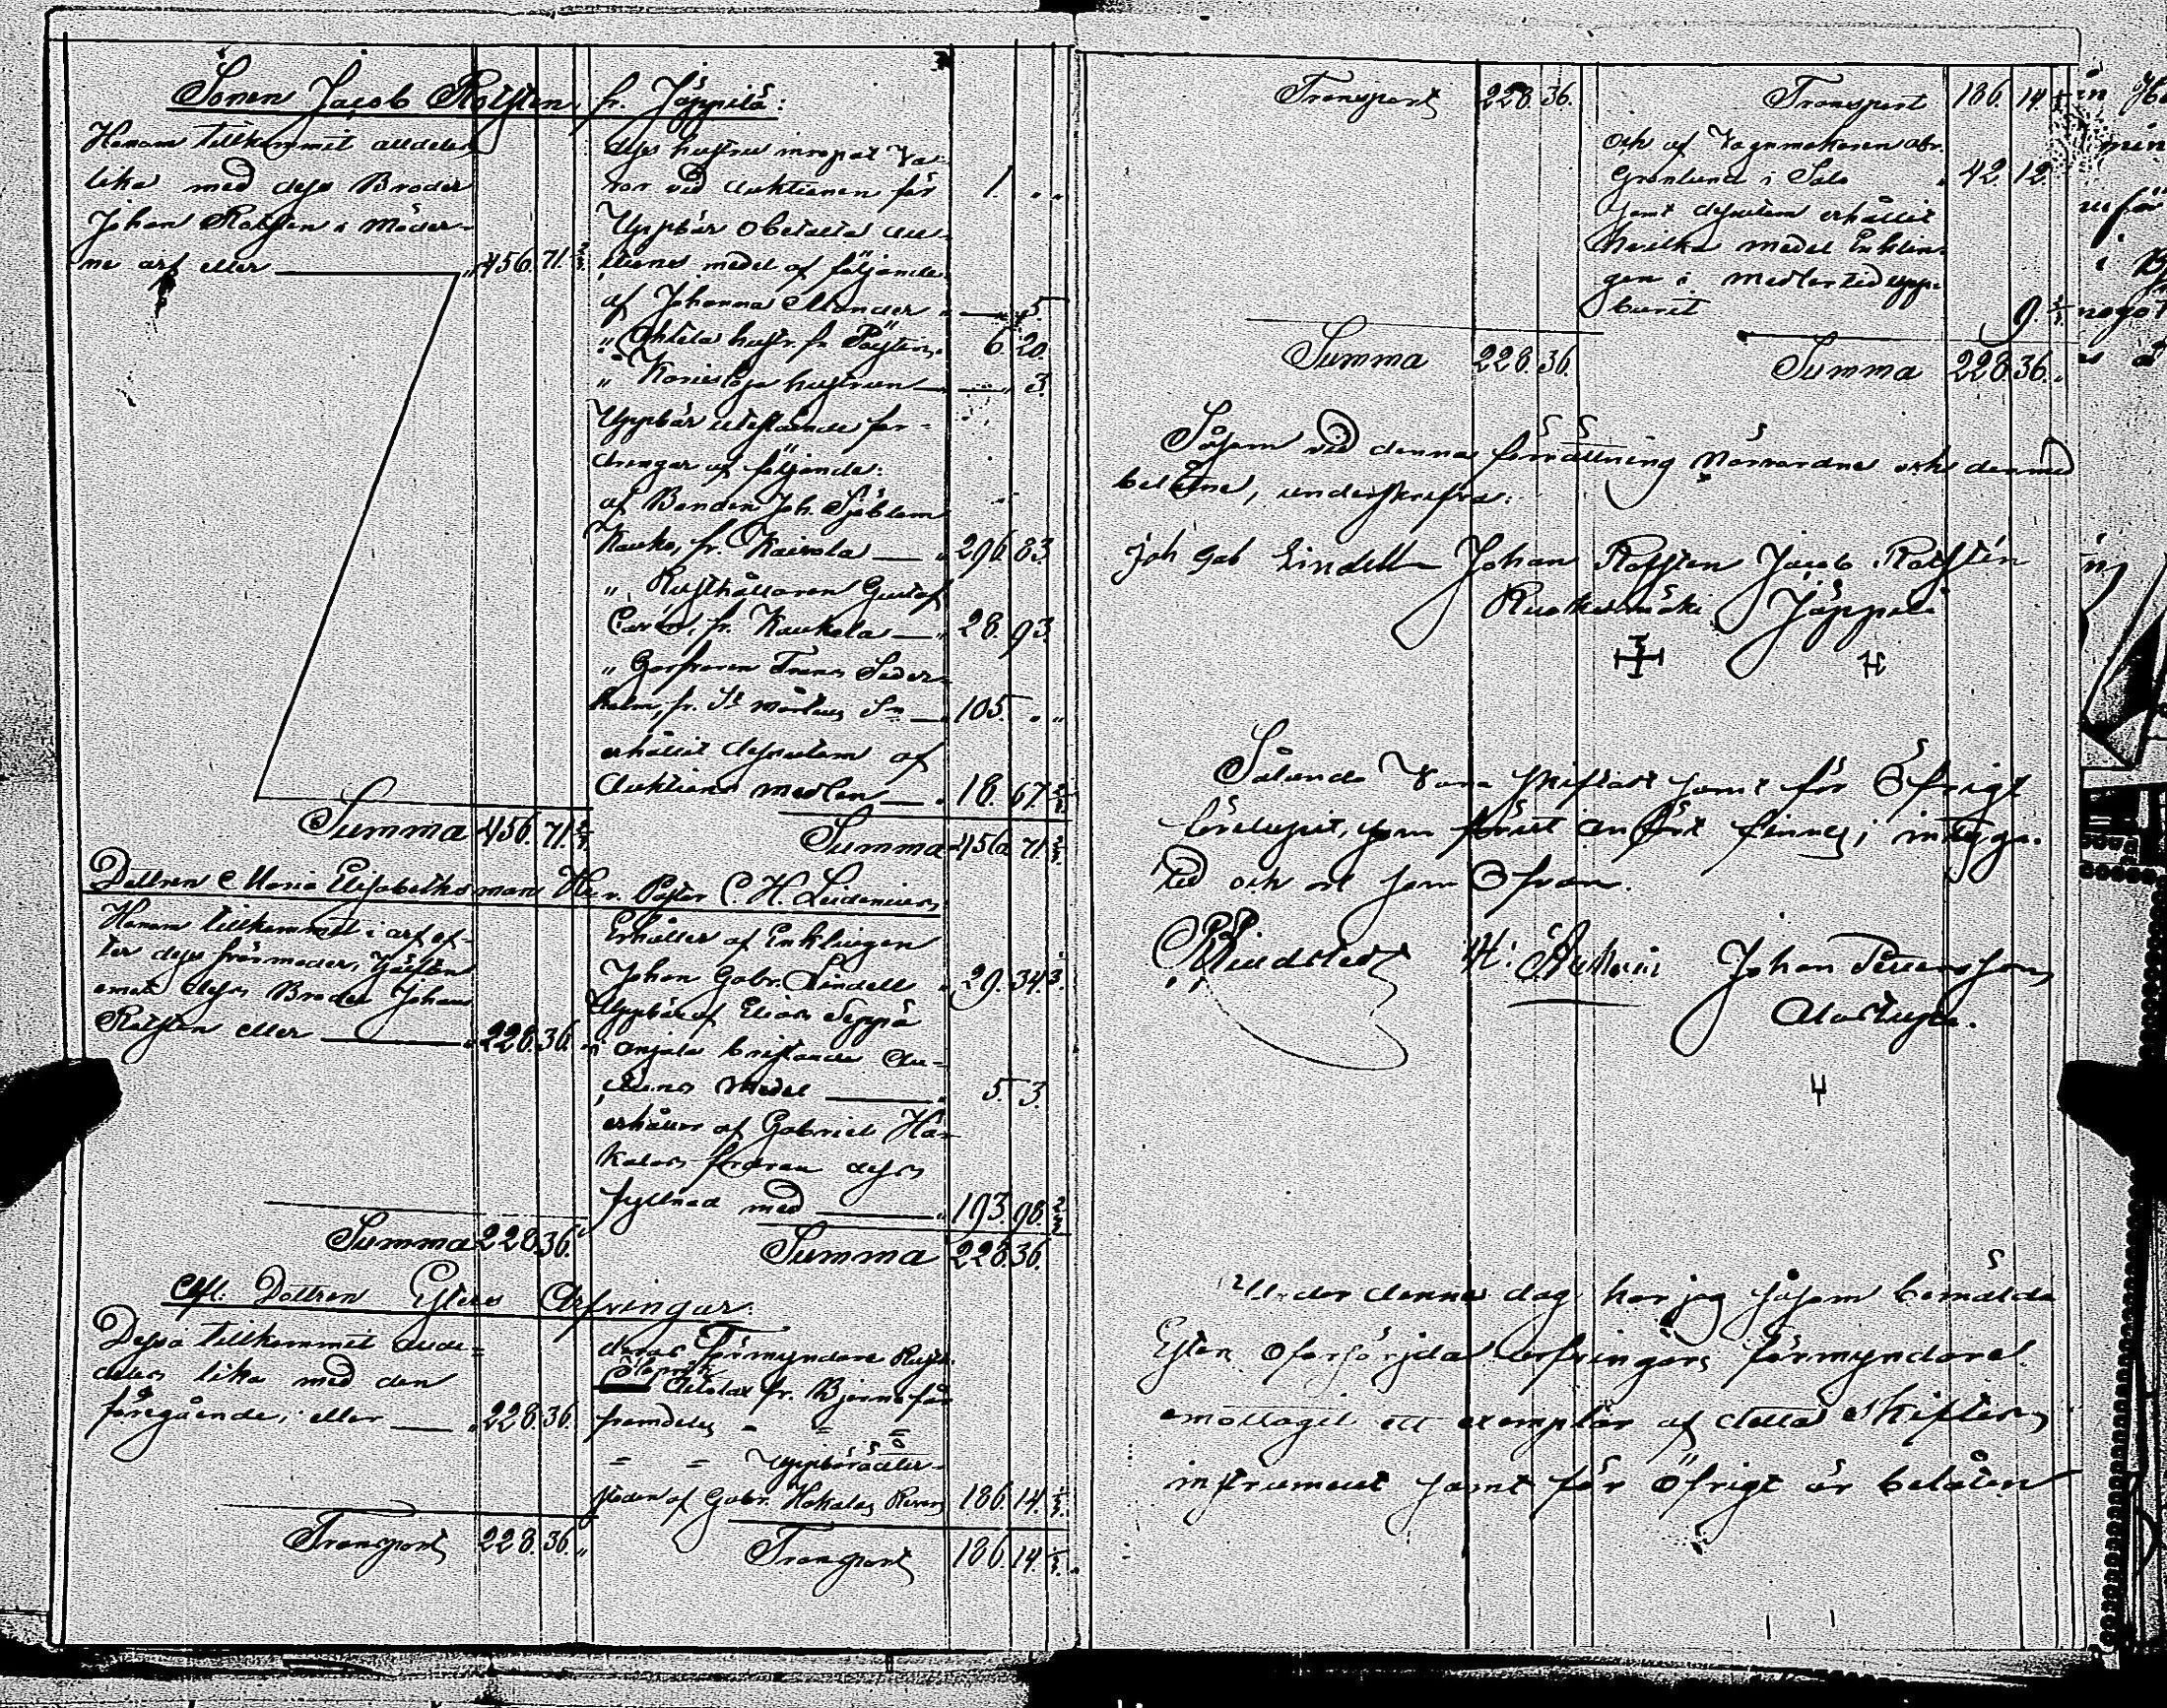 Sonen Jacob Rotsten, fr. Jäppilä:
Honom tillkommit alldeles
lika med dess Broder
Johan Rotsten i Möder-
ne arf eller " 456. 71 2/3
Summa 456. 71 2/3
dess hustru inropat Va-
ror vid Auktionen för 1. " "
Uppbär obetalta auc-
tions medel af följande.
af Johanna " 5.
" hustr. fr. 6. 20.
" hustrun " 3.
Uppbär utestående for-
dringar af följande:
af Bonden Joh. Sjöblom
Kauko, fr. Kaivola " 296. 83.
" Rusthållaren Gustaf
fr. Kaukola " 28. 93.
" Garfvaren Seder-
holm, fr. St Mårtens Sn " 105. " "
erhållit dessutom af
Auktions medlen " 18. 67 2/3
Summa 456. 71 2/3
Dottren Maria Elisabeths man Herr Pastor C. H.
Honom tillkommit i arf ef-
ter dess frus moder, hälften
emot dess Broder Johan
Rotsten eller " 228. 36. "
Summa 228. 36. "
Erhåller af Enklingen
Johan Gabr. Lindell " 29. 34 1/3
Uppbär af Elias Seppä
i Anjala bristande Au-
ctions Medel " 5. 3.
erhåller af Gabriel
fordran dess
fyllnad med " 193. 98. 2/3
Summa 228. 36.
Afl. Dottren Esters Arfvingar.
Dessa tillkommit allde-
deles lika med den
föregående, eller " 228. 36.
Transport 228. 36. "
deras Förmyndare Rusth.
Henrik
fr. Bjerno får
framdeles " =
= = Uppbära åter-
stoden af Gabr. Hakalas Revers 186. 14. 1/3
Transport 186. 14 1/3
Transport 228. 36.
Summa 228. 36.
Transport 186. 14 1/3
och af Vagnmakaren Abr.
Grönlund i Salo " 42. 12.
samt dessutom erhållit
hvilka medel Enklin-
gen i medlertid upp-
burit 9. 2/3
Summa 228. 36. "
Såsom vid denna förrättning närvarande och dermed
belåtne, underskrifva:
Joh Gab Lindell Johan Rotsten Jacob Rotstén
Ruokosmäki Jäppilä
Sålunda vara skiftadt samt för Öfrigt
förelupit, som förut anfört finnes; intyga.
tid och ort som Ofvan.
Lindstedt Johan
Under denna dag har jag såsom bemälda
Esters oförsörjda arfvingars förmyndare
emottagit ett exemplar af detta skiftes
instrument samt för öfrigt är belåten